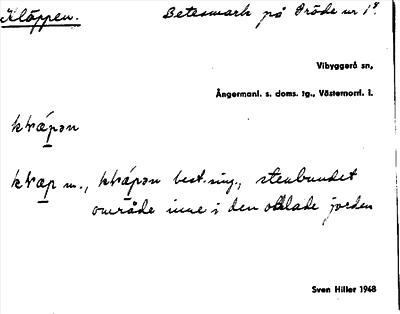 Kläppen. Betesmark på Präde nr 1⁸.
Vibyggerå sn,
Ångermanl. s. doms. tg., Västernorrl. l.
kłrápən
kłrap m., kłrápən best. sing., stenbundet
område inne i den odlade jorden
Sven Hiller 1948